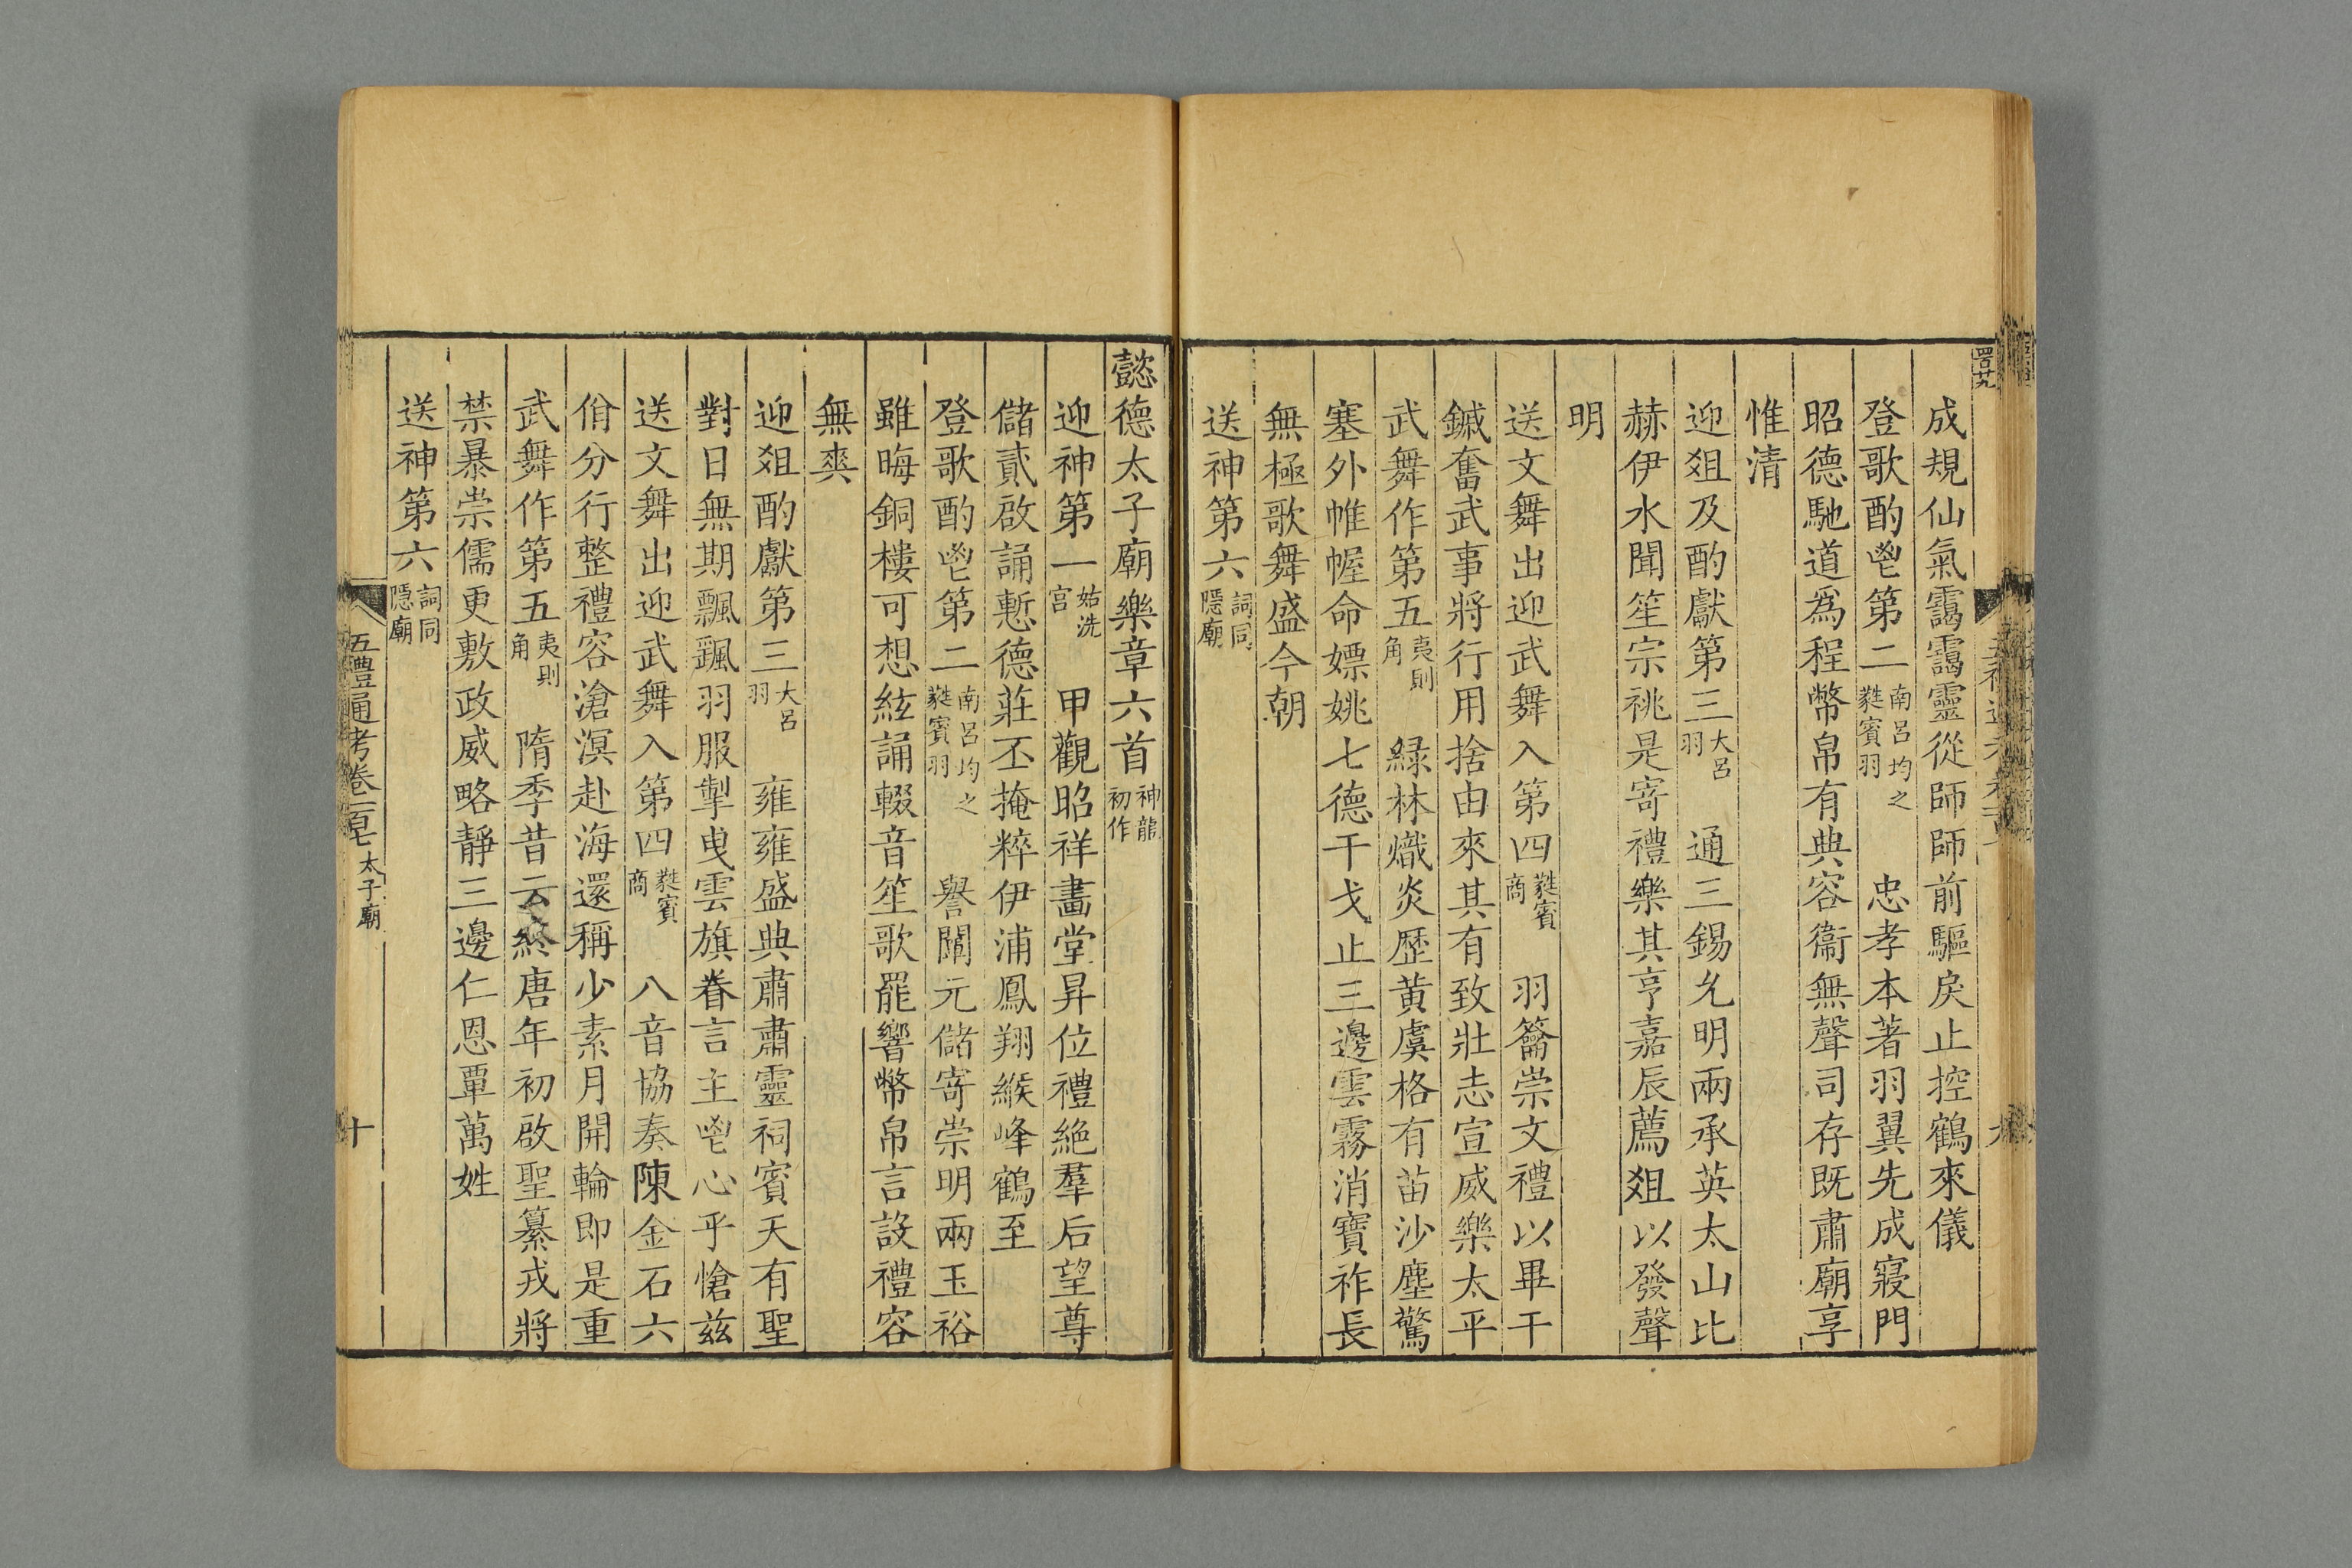 成規仙氣靄靄靈從師師前驅戾止控鶴來儀
登歌酌鬯第二南呂均之蕤賓羽 忠孝本著羽翼先成寢門
昭德馳道爲程幣帛有典容衞無聲司存既肅廟享
惟清
迎俎及酌獻第三大呂羽 通三錫允明兩承英太山比
赫伊水聞笙宗祧是寄禮樂其亨嘉辰薦俎以發聲
明
送文舞出迎武舞入第四蕤賓商 羽籥崇文禮以畢干
鏚奮武事將行用捨由來其有致壯志宣威樂太平
武舞作第五夷則角 緑林熾炎歷黄虞格有苗沙塵驚
塞外帷幄命嫖姚七德干戈止三邊雲霧消寶祚長
無極歌舞盛今朝
送神第六詞同隱廟
懿德太子廟樂章六首神龍初作
迎神第一姑洗宫 甲觀昭祥畫堂昇位禮絶羣后望尊
儲貳啟誦慙德莊丕掩粹伊浦鳳翔緱峰鶴至
登歌酌鬯第二南呂均之蕤賓羽 譽闡元儲寄崇明兩玉裕
雖晦銅樓可想絃誦輟音笙歌罷響幣帛言設禮容
無爽
迎俎酌獻第三大呂羽 雍雍盛典肅肅靈祠賓天有聖
對日無期飄颻羽服掣曳雲旗眷言主鬯心乎愴兹
送文舞出迎武舞入第四蕤賓商 八音協奏陳金石六
佾分行整禮容滄溟赴海還稱少素月開輪即是重
武舞作第五夷則角 隋季昔云終唐年初啟聖纂戎將
禁暴崇儒更敷政威略靜三邊仁恩覃萬姓
送神第六詞同隱廟
五禮通考卷 太子廟 十